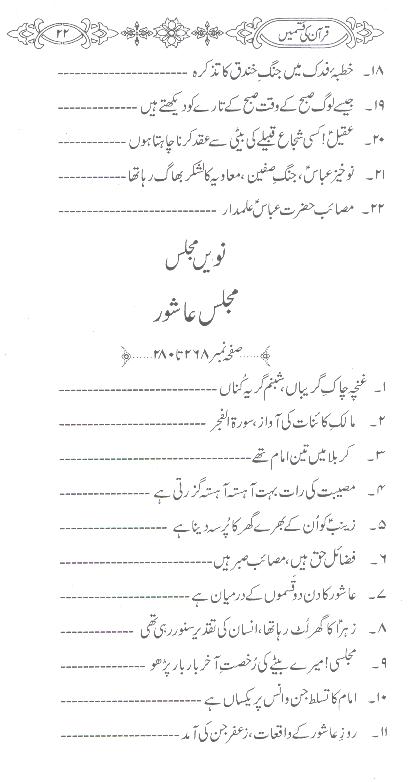 قرآن کی قسمیں ۲۲
۱۸۔ خطبۂ فدک میں جنگِ خندق کا تذکرہ
۱۹۔ جیسے لوگ صبح کے وقت صبح کے تارے کو دیکھتے ہیں
۲۰۔ عقیلؑ! کسی شجاع قبیلے کی بیٹی سے عقد کرنا چاہتا ہوں
۲۱۔ نوخیز عباسؑ، جنگِ صفین، معاویہ کا لشکر بھاگ رہا تھا
۲۲۔ مصائب حضرت عباسؑ علمدار
نویں مجلس
مجلس عاشور
صفحہ نمبر ۲۶۸ تا ۲۸۰
۱۔ غنچہ چاک گریباں، شبنم گریہ کُناں
۲۔ مالکِ کائنات کی آواز، سورۃ الفجر
۳۔ کربلا میں تین امام تھے
۴۔ مصیبت کی رات بہت آہستہ آہستہ گزرتی ہے
۵۔ زینبؑ کو اُن کے بھرے گھر کا پُرسہ دینا ہے
۶۔ فضائل حق ہیں، مصائب صبر ہیں
۷۔ عاشور کا دن دو قَسموں کے درمیان ہے
۸۔ زہراؑ کا گھر لُٹ رہا تھا، انسان کی تقدیر سنور رہی تھی
۹۔ مجلسی! میرے بیٹے کی رُخصتِ آخر بار بار پڑھو
۱۰۔ امام کا تسلط جن و انس پر یکساں ہے
۱۱۔ روزِ عاشور کے واقعات، زعفر جن کی آمد